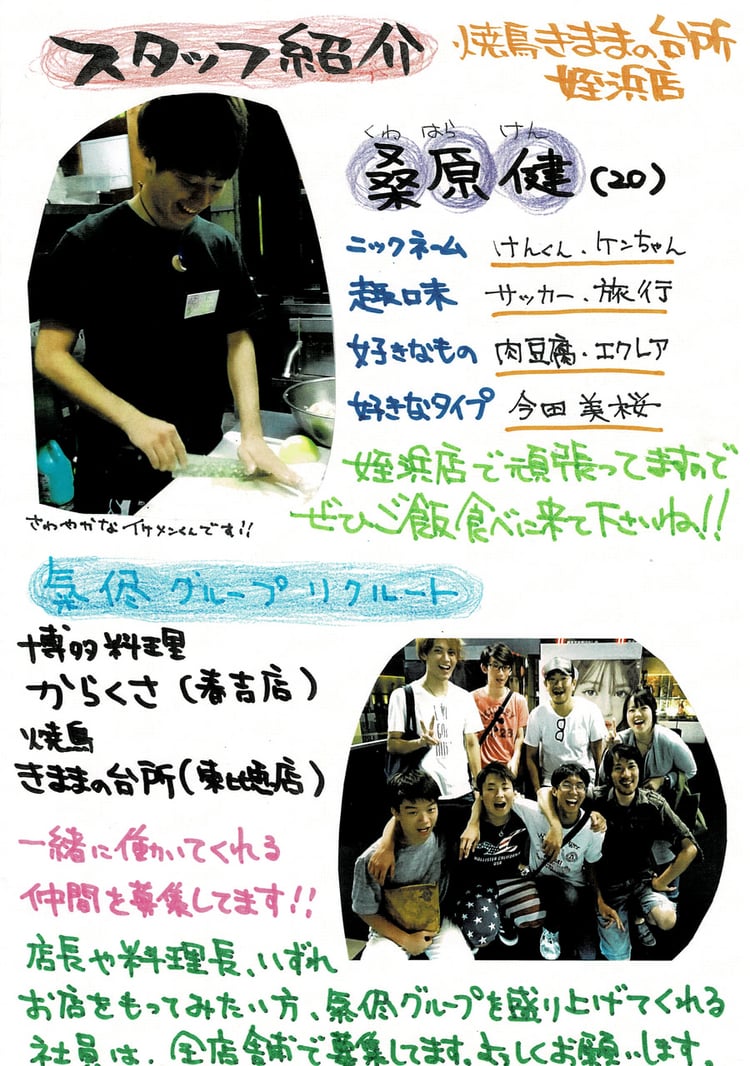 スタッフ紹介
焼鳥きままの台所
姪浜店
くわ はら けん
桑原 健 (20)
ニックネーム けんくん、ケンちゃん
趣味 サッカー、旅行
好きなもの 肉豆腐・エクレア
好きなタイプ 今田美桜
姪浜店で頑張ってますので
ぜひご飯食べに来て下さいね!!
さわやかなイケメンくんです!!
氣侭グループリクルート
博多料理
からくさ(春吉店)
焼鳥
きままの台所(東比恵店)
一緒に働いてくれる
仲間を募集してます!!
店長や料理長、いずれ
お店をもってみたい方、氣侭グループを盛り上げてくれる
社員は、全店舗で募集してます。よろしくお願いします。